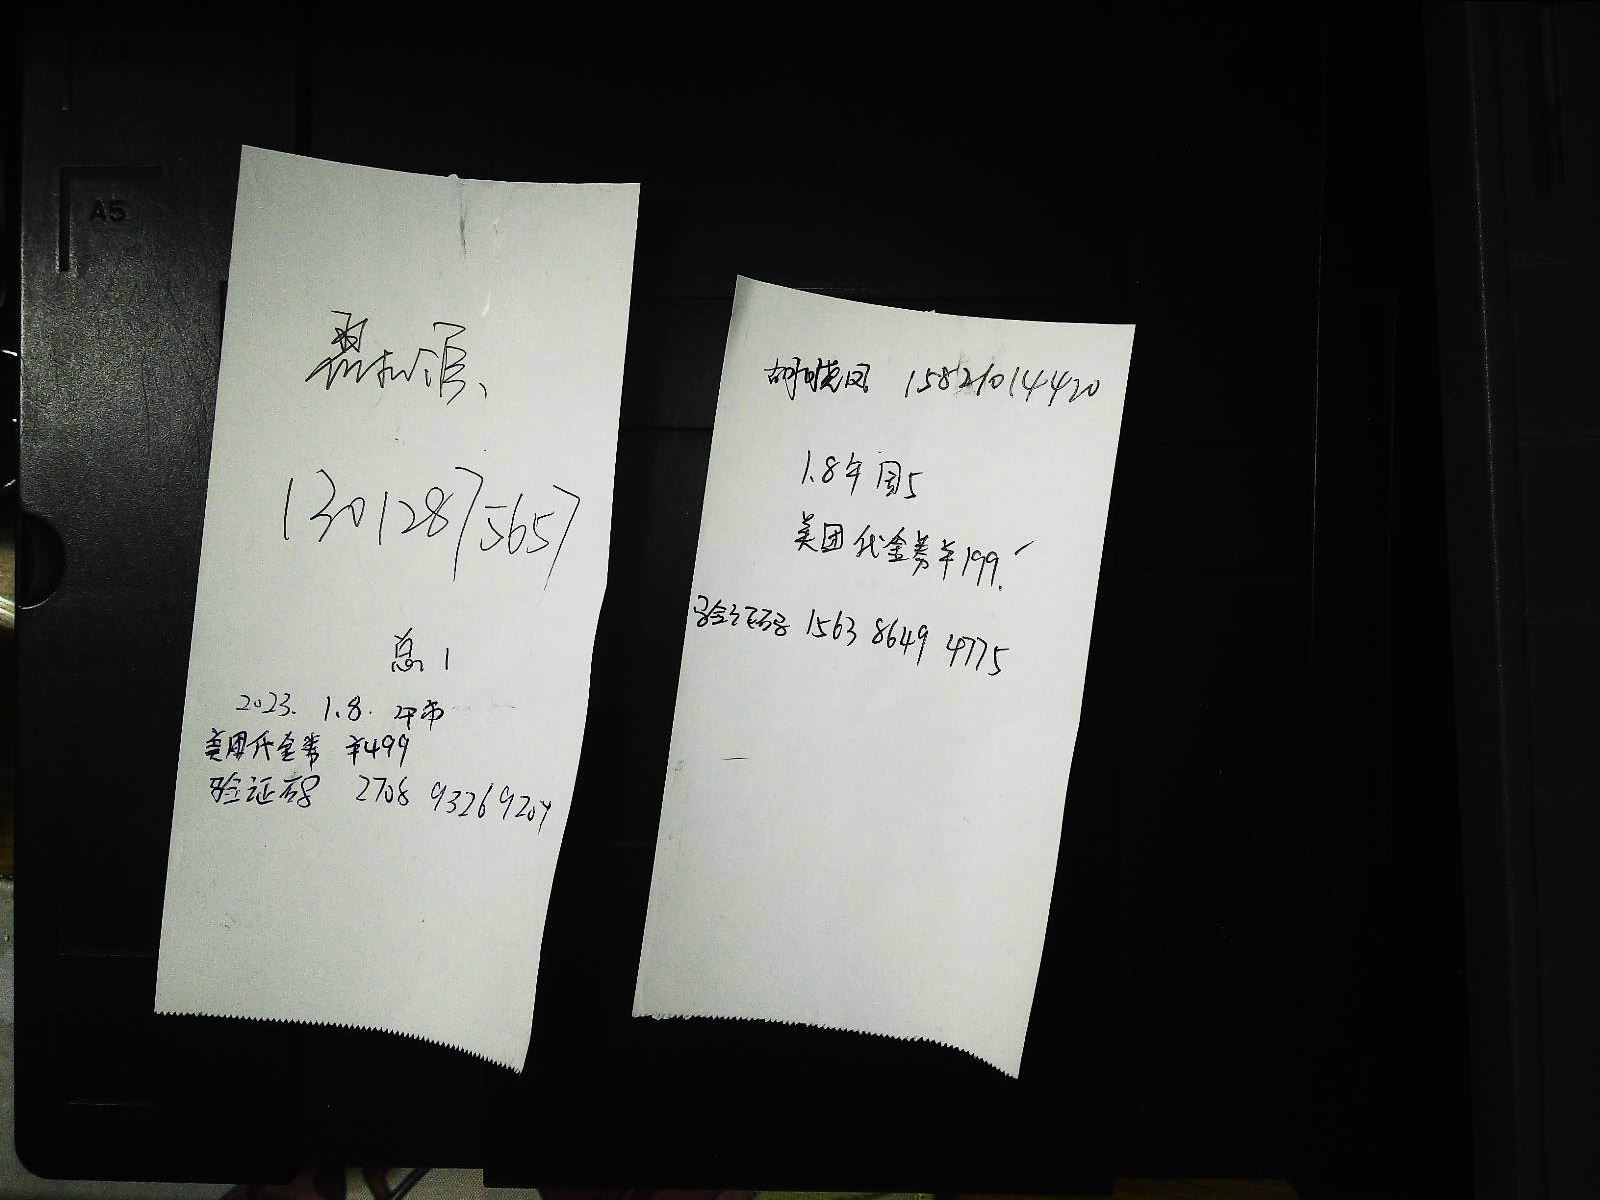 A5
13012875657
总1
2023. 1.8. 午市
美团代金券 ¥499
验证码 2708 9326 9204
胡晓凤 15821014420
1.8午 园5
美团代金券¥199.
验证码 1563 8649 4775